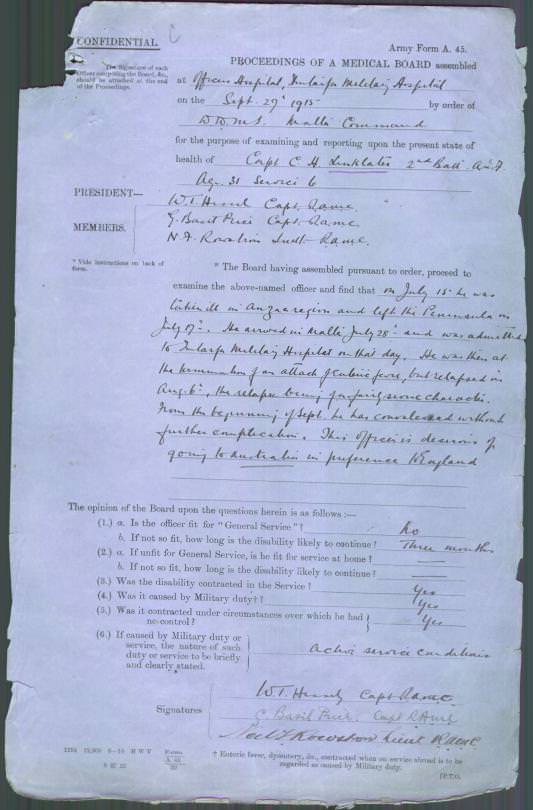 CONFIDENTIAL.
Army Form A. 45.
The Signature of each
Officer comprising the Board, &c.,
should be attached at the end
of the Proceedings.
PROCEEDINGS OF A MEDICAL BOARD assembled
at Officers Hospital, Imtarfa Military Hospital
on the Sept. 29th 1915 by order of
D.D.M.S. Malta Command
for the purpose of examining and reporting upon the present state of
health of Capt C H Linklater 2nd Batt A.I.F
Age 31 Service 6
PRESIDENT—
W.T. Capt. Ramc.
MEMBERS.
G. Basil Price Capt. Ramc
N. F. Rowstron Lieut Ramc.
* Vide instructions on back of
form.
* The Board having assembled pursuant to order, proceed to
examine the above-named officer and find that on July 15th he was
taken ill in Anzac region and left the Peninsula on
July 17th. He arrived in Malta July 28th and was admitted
to Imtarfa Military Hospital on that day. He was then at
the termination of an attack of enteric fever, but relapsed on
Aug. 6th, the relapse being of a fairly severe character.
From the beginning of Sept. he has convalesced without
further complication. This Officer is desirous of
going to Australia in preference to England
The opinion of the Board upon the questions herein is as follows:—
(1.) a. Is the officer fit for "General Service"? No
b. If not so fit, how long is the disability likely to continue? Three months
(2.) a. If unfit for General Service, is he fit for service at home? —
b. If not so fit, how long is the disability likely to continue? —
(3.) Was the disability contracted in the Service? Yes
(4.) Was it caused by Military duty†? Yes
(5.) Was it contracted under circumstances over which he had
no control? Yes
(6.) If caused by Military duty or
service, the nature of such
duty or service to be briefly
and clearly stated.
Active service conditions
W.T. Capt Ramc.
Signatures
G. Basil Price. Capt RAMC
Rowstron Lieut Ramc
Forms
A. 45
† Enteric fever, dysentery, &c., contracted when on service abroad is to be
regarded as caused by Military duty.
[P.T.O.